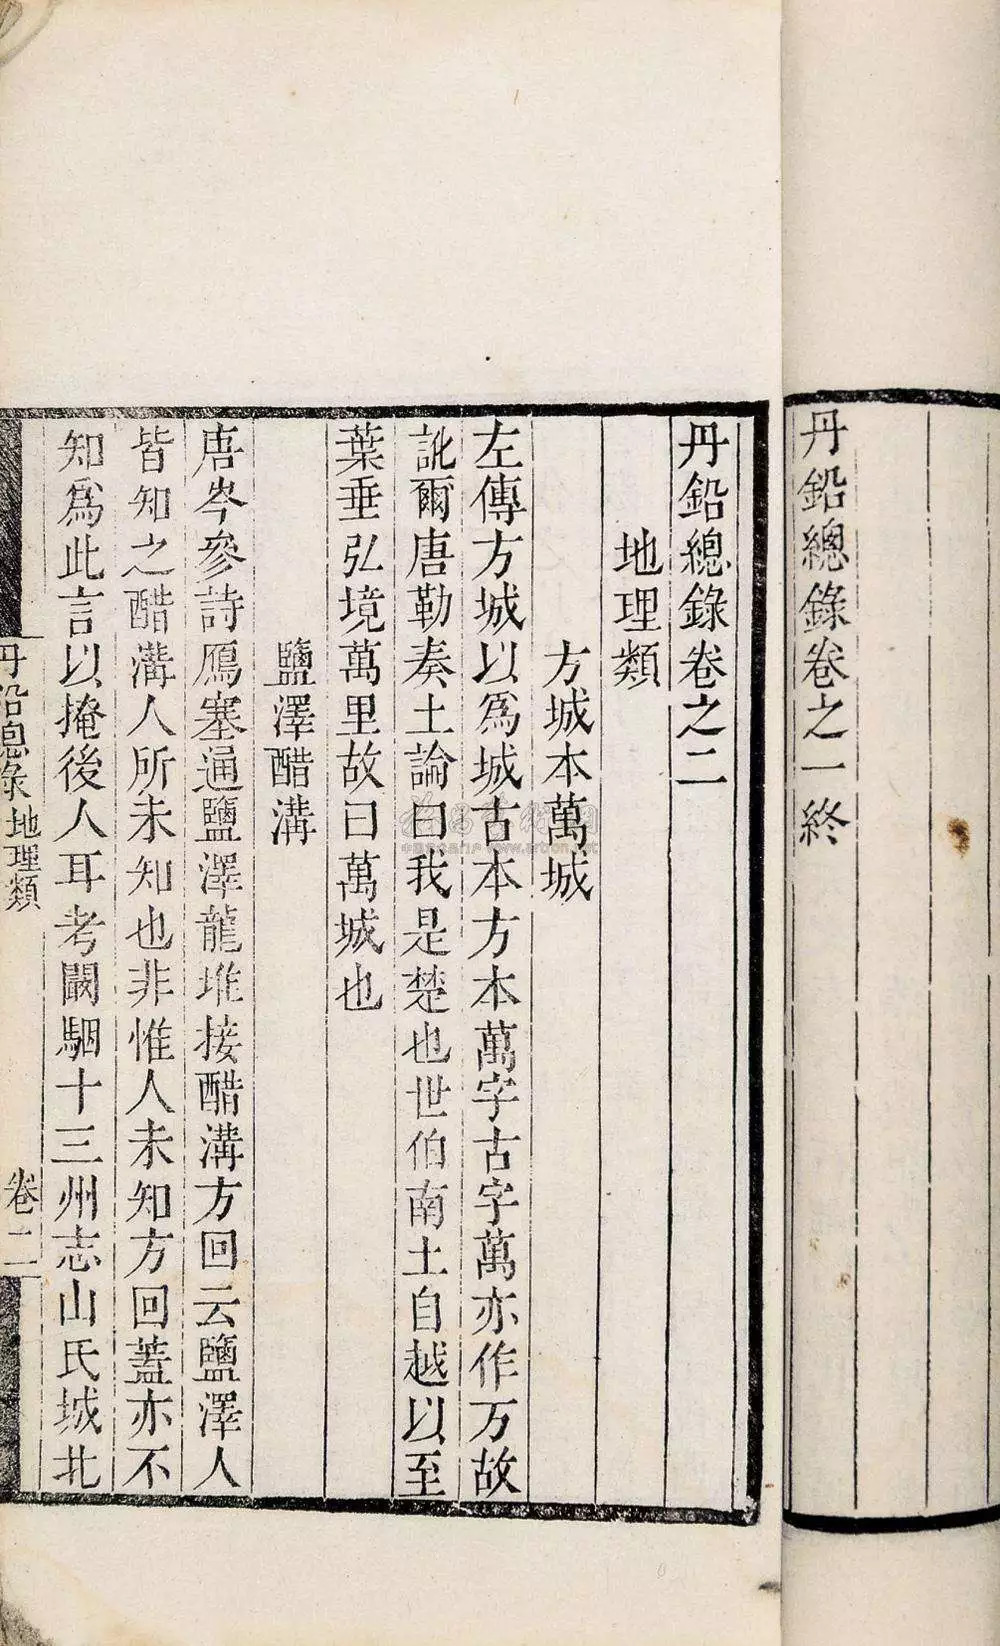 丹鉛總錄卷之一終
丹鉛總錄卷之二
地理類
方城本萬城
左傳方城以爲城古本方本萬字古字萬亦作万故
訛爾唐勒奏土論曰我是楚也世伯南土自越以至
葉垂弘境萬里故曰萬城也
鹽澤醋溝
唐岑參詩鴈塞通鹽澤龍堆接醋溝方回云鹽澤人
皆知之醋溝人所未知也非惟人未知方回蓋亦不
知爲此言以掩後人耳考闞駰十三州志山氏城北
丹鉛總錄地理類
卷二
www.artron.net